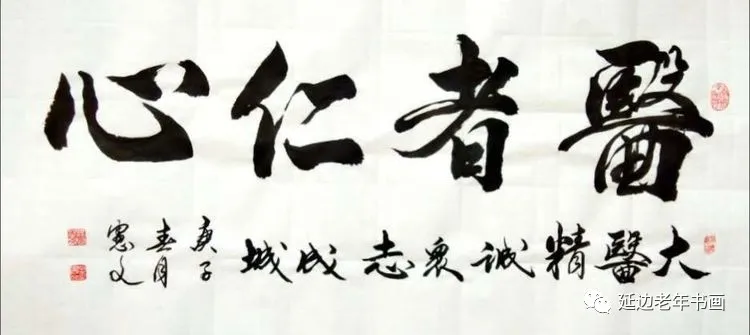 醫者仁心
大醫精誠衆志成城
庚子
春月
憲文
延边老年书画